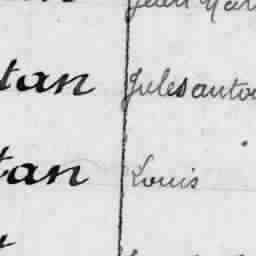 tan Jules antoi
tan Louis